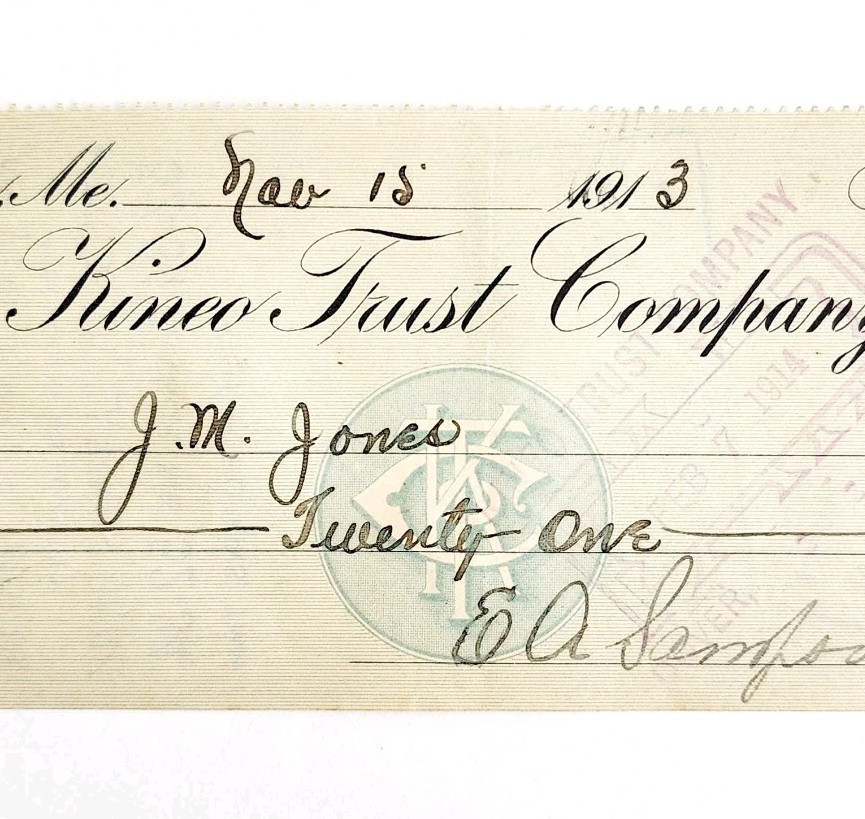 Me. Nov 15 1913
Kineo Trust Company
J. M. Jones
Twenty One
E A Sampso
TRUST COMPANY
FEB 7 1914